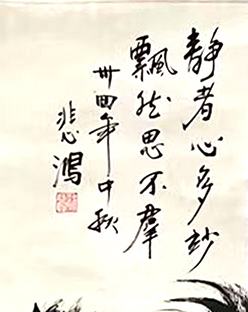 静者心多妙
飄然思不羣
卅四年中秋
悲鴻